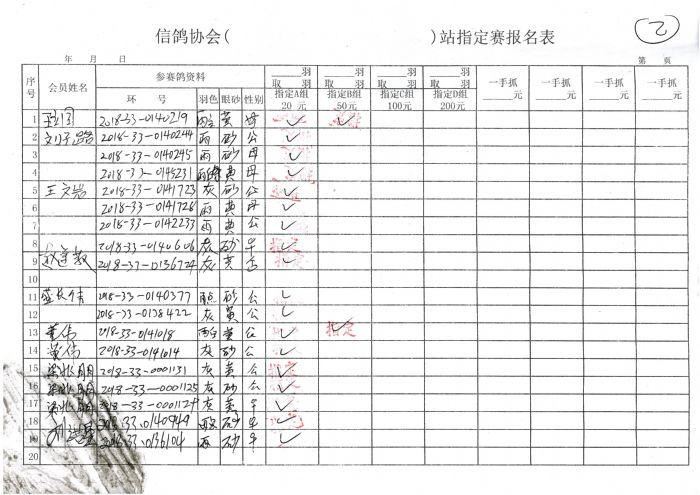 2
信鸽协会( )站指定赛报名表
年 月 日 第 页
序号 会员姓名 参赛鸽资料 羽 取 羽 指定A组 20 元 羽 取 羽 指定B组 50元 羽 取 羽 指定C组 100元 羽 取 羽 指定D组 200元 一手抓 元 一手抓 元 一手抓 元 一手抓 元
环 号 羽色 眼砂 性别
1 2018-33-0140219 黄 母 ✓ ✓
2 2018-33-0140244 雨 砂 公 ✓
3 2018-33-0140245 雨 砂 母 ✓
4 2018-33-0145231 黄 母 ✓
5 王文岩 2018-33-0141723 灰 砂 公 ✓
6 2018-33-0141726 雨 黄 母 ✓
7 2018-33-0142233 雨 黄 公 ✓
8 2018-33-0140606 灰 砂 ✓ 指定
9 2018-37-0136724 灰 黄 ✓
10
11 2018-33-0140377 砂 公 ✓
12 2018-33-0138422 灰 黄 公 ✓
13 董伟 2018-33-0141018 黄 公 ✓ ✓ 指定
14 黄伟 2018-33-0141014 灰 砂 公 ✓
15 2018-33-0001131 灰 黄 公 ✓ 指定
16 2018-33-0001125 灰 砂 公 ✓
17 2018-33-0001129 灰 黄 ✓
18 2018.33.0140949 砂 ✓
19 2018.33.0136104 雨 砂 ✓
20